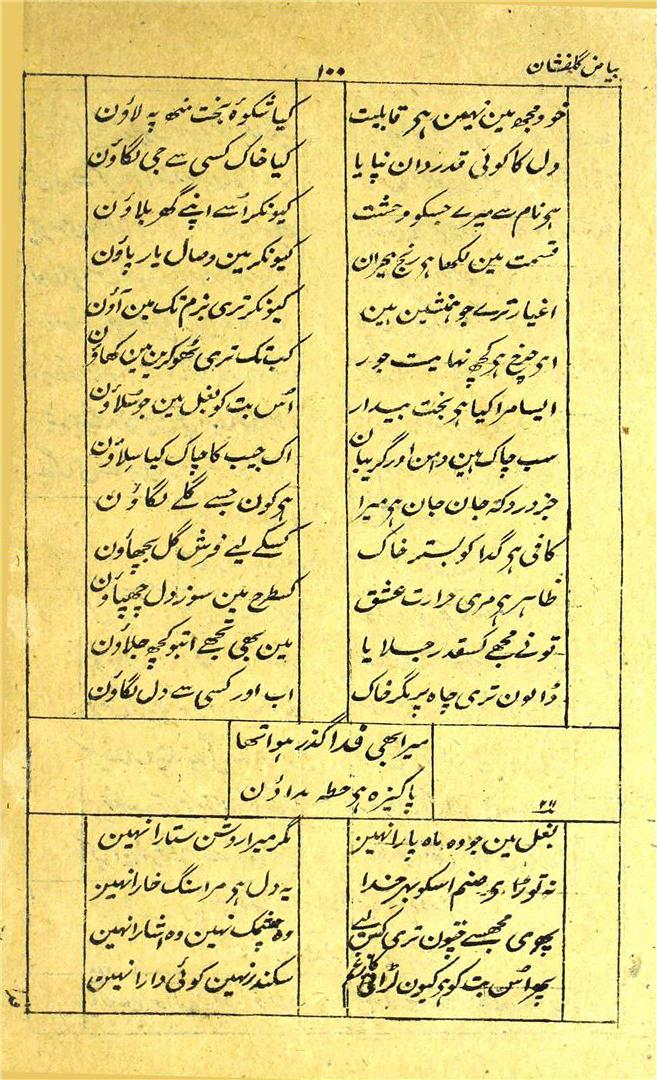 بیاض گلفشان
۱۰۰
خود مجھ مین نہین ہی قابلیت کیا شکوۂ بخت منھ پہ لاؤن
دل کا کوئی قدردان نپایا کیا خاک کسی سے جی لگاؤن
ہی نام سے میرے جسکو وحشت کیونکر اُسے اپنے گھر بلاؤن
قسمت مین لکھا ہی رنج ہجران کیونکر مین وصال یار پاؤن
اغیار ترے جو ہمنشین ہین کیونکر تری بزم تک مین آؤن
ای چرخ ہی کچھ نہایت جور کب تک تری ٹھوکرین مین کھاؤن
ایسا مرا کیا ہی بخت بیدار اُس بت کو بغل مین جو سُلاؤن
سب چاک ہین دامن اور گریبان اک جیب کا چاک کیا سِلاؤن
جز درد کہ جان جان ہی میرا ہی کون جسے گلے لگاؤن
کافی ہی گدا کو بستر خاک کسکے لیے فرش گل بچھاؤن
ظاہر ہی مری حرارت عشق کسطرح مین سوز دل چھپاؤن
تونے مجھے کسقدر جلایا مین بھی تجھے ابتو کچھ جلاؤن
ڈالون تری چاہ پر مگر خاک اب اور کسی سے دل لگاؤن
میرا بھی فدا گذر ہو اتنا
پاکیزہ ہی خطہ
بغل مین جو وہ ماہ پارا نہین مگر میرا روشن ستارا نہین
نہ توڑا ہی صنم اسکو بہر خدا یہ دل ہی مرا سنگ خارا نہین
مجھسے تری کس لیے وہ چشمک نہین وہ اشارا نہین
پھر اُس بت کو ہی کیون سکندر نہین کوئی دارا نہین